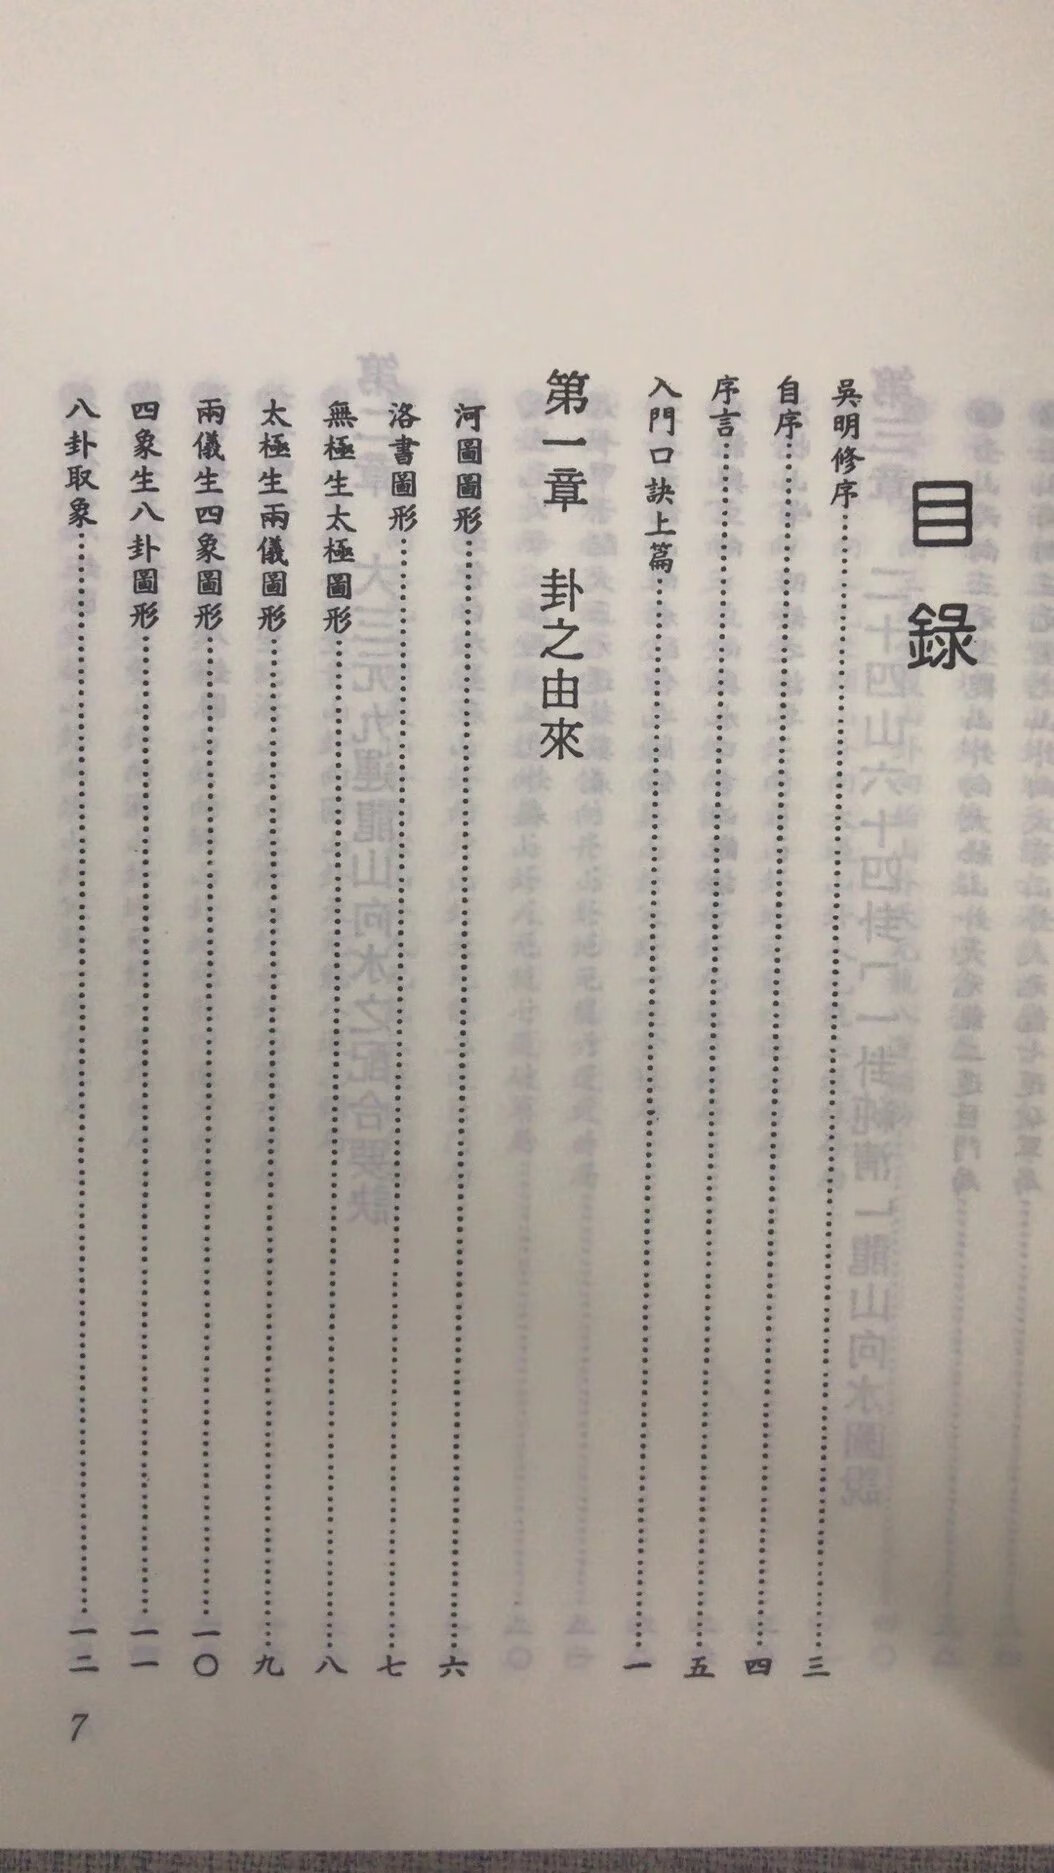 目錄
吳明修序……三
自序……四
序言……五
入門口訣上篇……一
第一章 卦之由來
河圖圖形……六
洛書圖形……七
無極生太極圖形……八
太極生兩儀圖形……九
兩儀生四象圖形……一〇
四象生八卦圖形……一一
八卦取象……一二
7